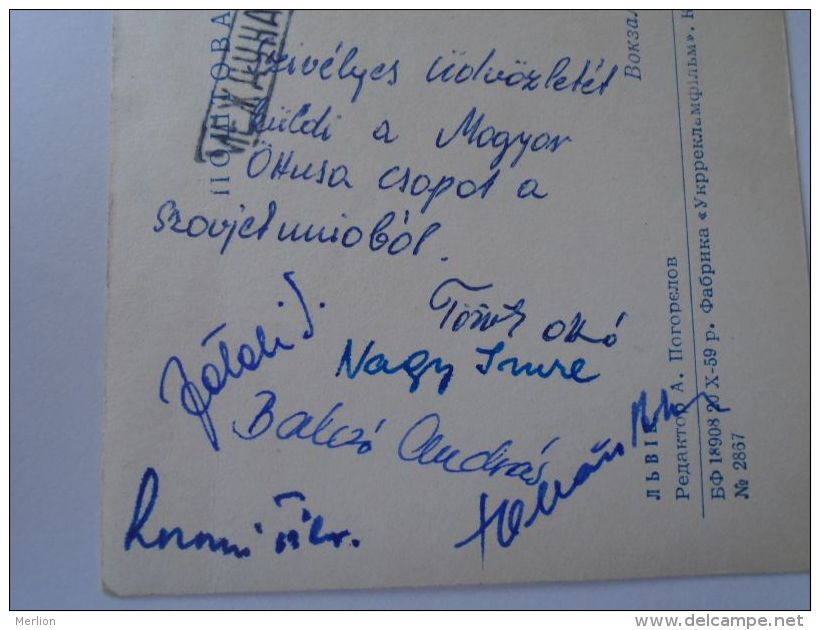 Szivélyes üdvözletét
küldi a Magyar
Öttusa csopot a
Szovjetunioból.
Török Ottó
Nagy Imre
Balczó András
МЕЖДУНА
ПОЧТОВА
Вокзал
ЛЬВІВ
Редактор А. Погорєлов
БФ 18908 20 X-59 р. Фабрика «Укррекламфільм».
№ 2867
Merlion
www.delcampe.net